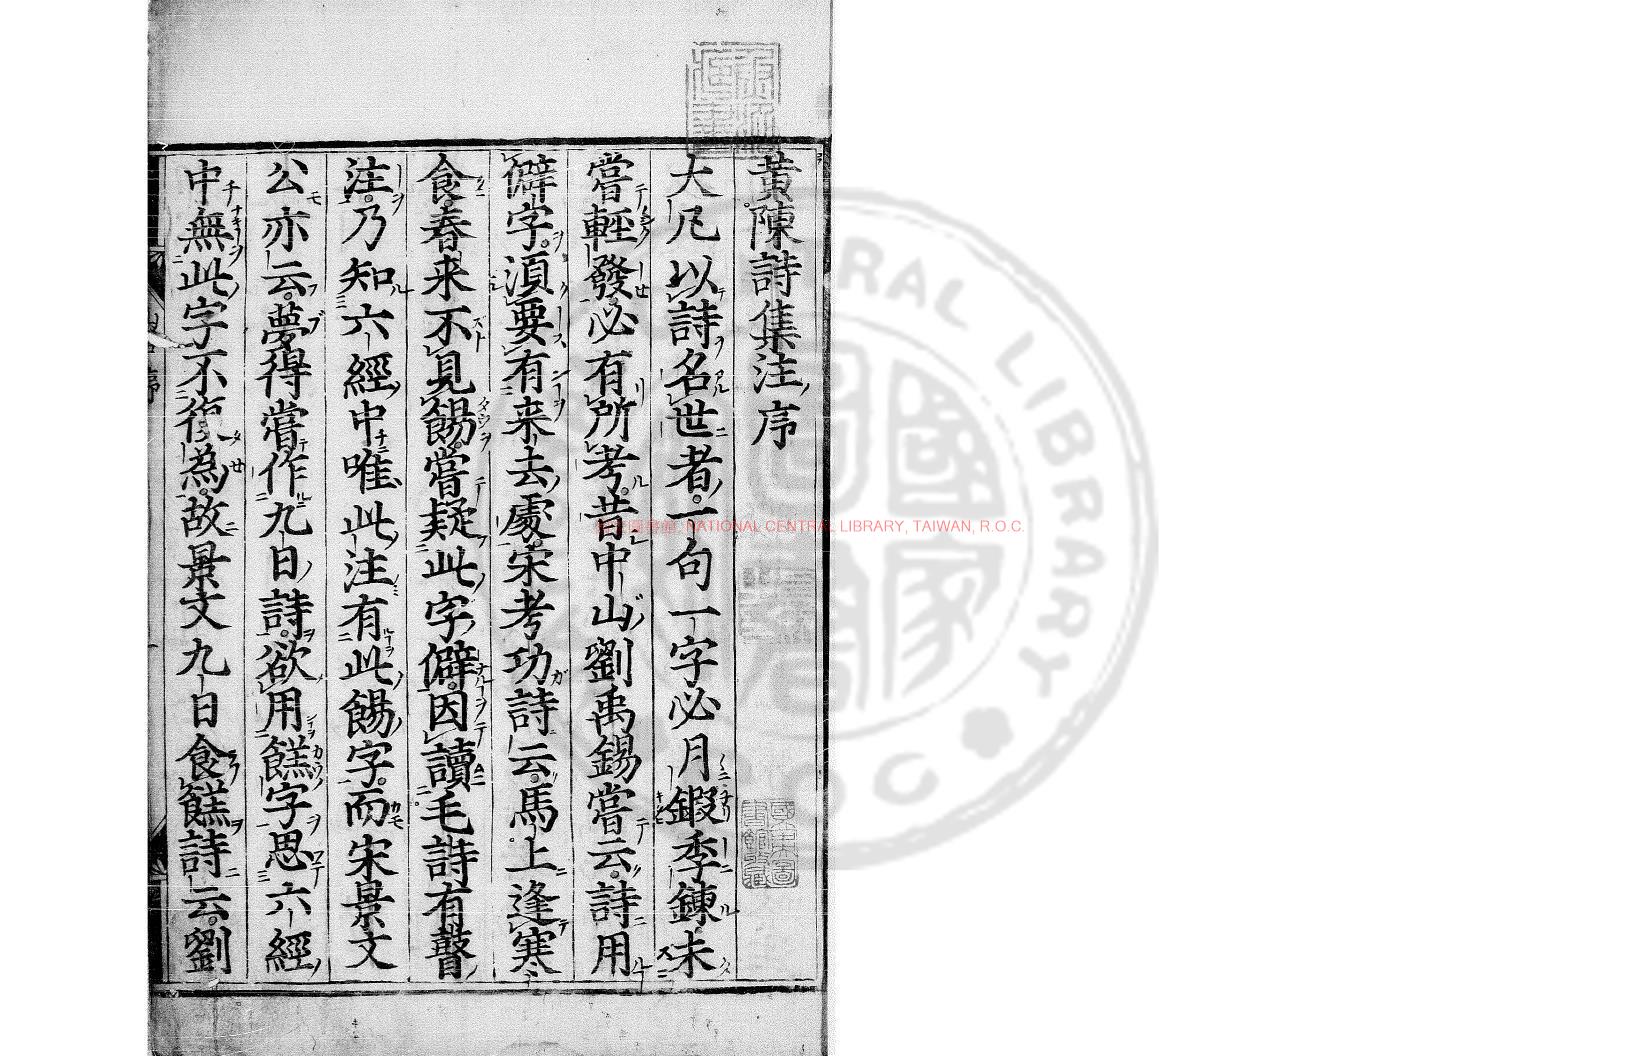 黄陳詩集注序
大凡以詩名世者一句一字必月鍜季鍊未
嘗輕發必有所考昔中山劉禹錫嘗云詩用
僻字湏要有来去處宋考功詩云馬上逢寒
食春来不見餳嘗疑此字僻因讀毛詩有瞽
注乃知六經中唯此注有此餳字而宋景文
公亦云夢得嘗作九日詩欲用餻字思六經
中無此字不復為故景文九日食餻詩云劉
NATIONAL CENTRAL LIBRARY, TAIWAN, R.O.C.